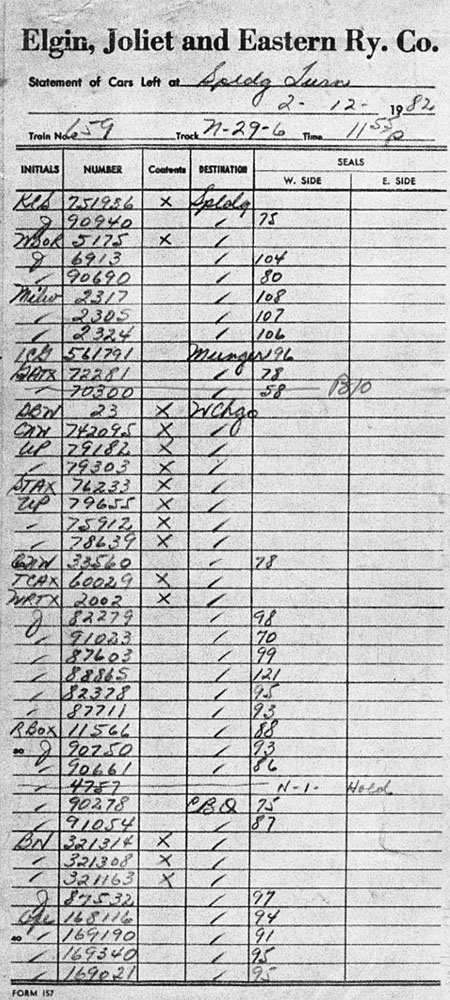 Elgin, Joliet and Eastern Ry. Co.
Statement of Cars Left at Spldg Turn
2-12- 1982
Train No. 159 Track N-29-6 Time 11 55 p
SEALS
INITIALS NUMBER Contents DESTINATION W. SIDE E. SIDE
751956 X Spldg
J 90940 ✓ 75
WSOR 5175 X ✓
J 6913 ✓ 104
✓ 90690 ✓ 80
Milw 2317 ✓ 108
✓ 2305 ✓ 107
✓ 2324 ✓ 106
ICG 561791 Munger 96
72281 ✓ 78
✓ 70300 ✓ 58 B/O
DBW 23 X WChgo
CNW 742095 X ✓
UP 79182 X ✓
✓ 79303 X ✓
STAX 76233 X ✓
UP 79655 X ✓
✓ 75912 X ✓
✓ 78639 X ✓
CNW 33560 ✓ 78
TCAX 60029 X ✓
WRTX 2002 X ✓
J 82279 ✓ 98
✓ 91023 ✓ 70
✓ 87603 ✓ 99
✓ 88865 ✓ 121
✓ 82378 ✓ 95
✓ 87711 ✓ 93
RBOX 11566 ✓ 88
20 J 90750 ✓ 93
✓ 90661 ✓ 86
✓ 4757 N-1- Hold
✓ 90278 CBQ 75
✓ 91054 ✓ 87
BN 321314 X ✓
✓ 321308 X ✓
✓ 321163 X ✓
J 87532 ✓ 97
168116 ✓ 94
✓ 169190 ✓ 91
✓ 169340 ✓ 95
✓ 169021 ✓ 95
FORM 157